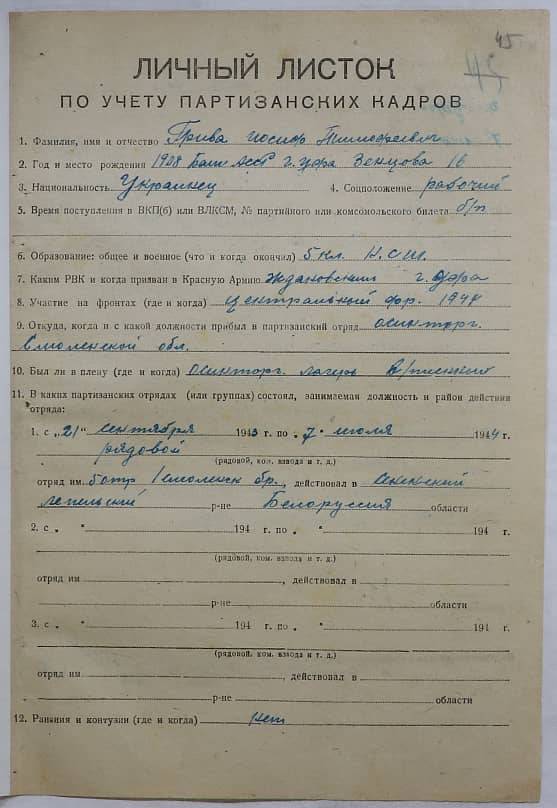 45
ЛИЧНЫЙ ЛИСТОК
ПО УЧЕТУ ПАРТИЗАНСКИХ КАДРОВ
1. Фамилия, имя и отчество Грива Иосиф Тимофеевич
2. Год и место рождения 1908 Баш АССР г. Уфа Зенцова 16
3. Национальность Украинец 4. Соцположение рабочий
5. Время поступления в ВКП(б) или ВЛКСМ, № партийного или комсомольского билета б/п
6. Образование: общее и военное (что и когда окончил) 5 кл. Н.С.Ш.
7. Каким РВК и когда призван в Красную Армию Ждановским г. Уфа
8. Участие на фронтах (где и когда) Центральный фр. 194
9. Откуда, когда и с какой должности прибыл в партизанский отряд осинторг.
Смоленской обл.
10. Был ли в плену (где и когда) Осинторг. лагерь в/пленных
11. В каких партизанских отрядах (или группах) состоял, занимаемая должность и район действия
отряда:
1. с „21" сентября 1943 г. по „7" июля 1944 г.
рядовой
(рядовой, ком. взвода и т. д.)
отряд им. 5 отр 1 Смоленск бр., действовал в
Лепельский р-не Белоруссия области
2. с „ " 194 г. по „ " 194 г.
(рядовой, ком. взвода и т. д.)
отряд им , действовал в
р-не области
3. с „ " 194 г. по „ " 194 г.
(рядовой, ком. взвода и т. д.)
отряд им. , действовал в
р-не области
12. Ранения и контузии (где и когда) нет